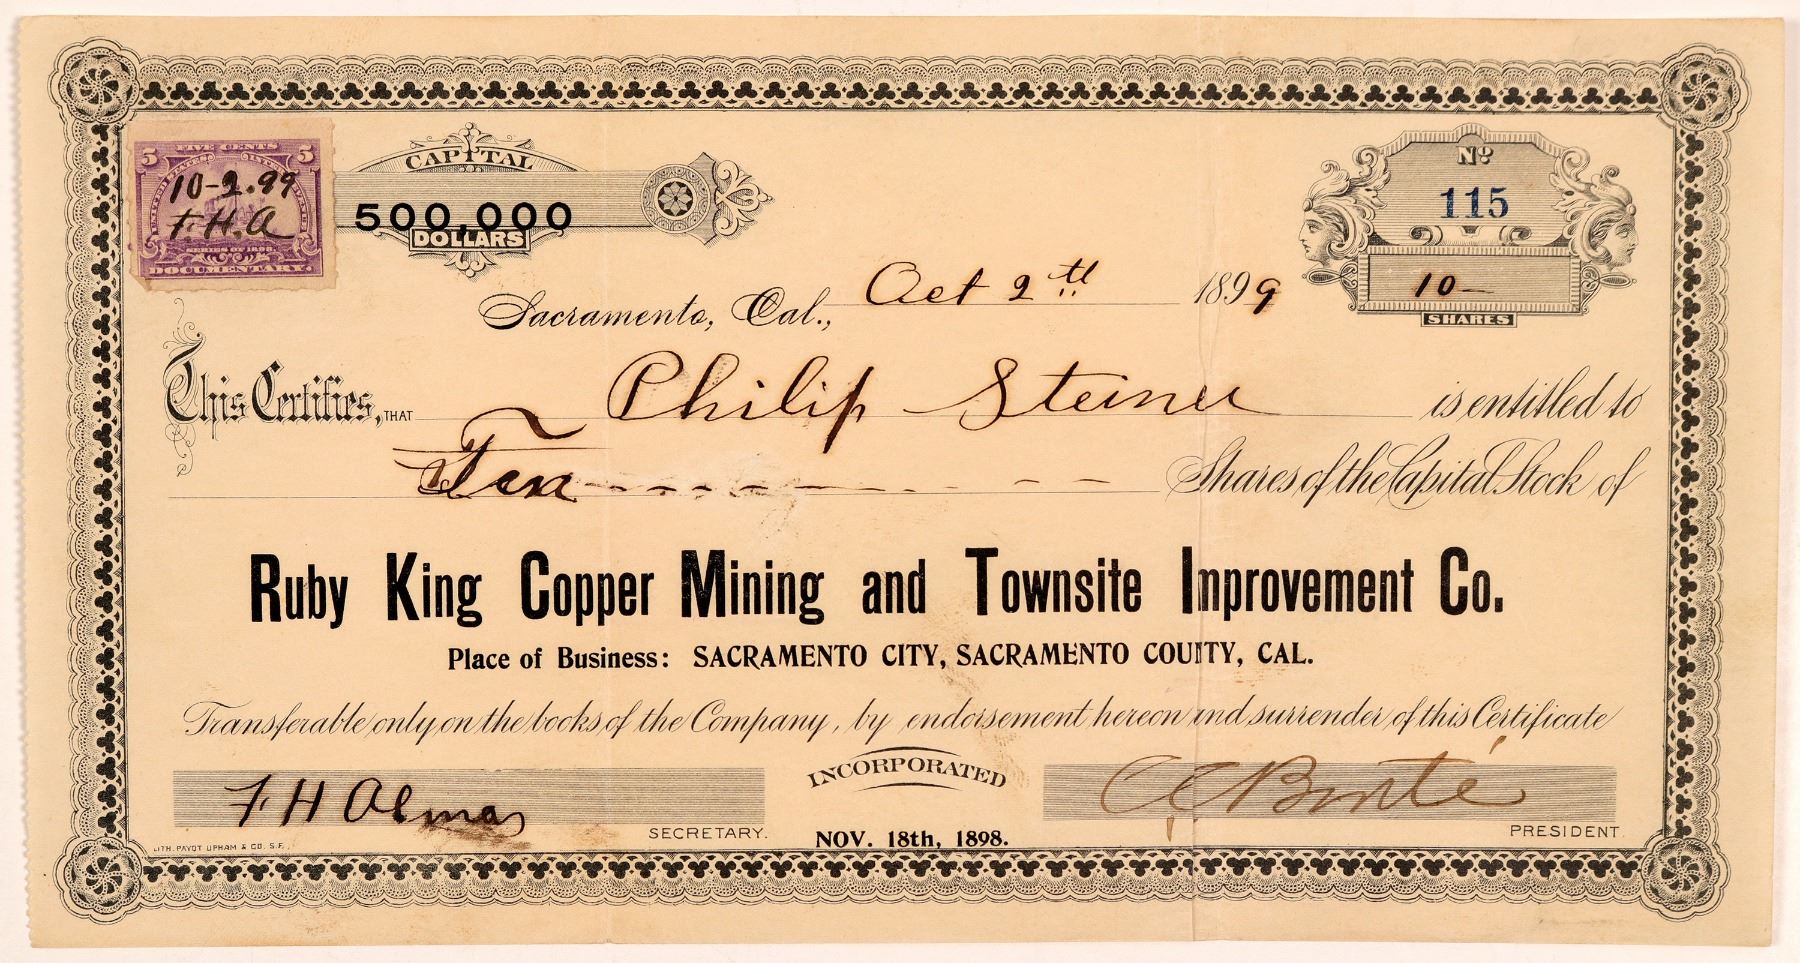 FIVE CENTS
5 5
UNITED STATES INTER. REVENUE
10-2.99
F.H.A
SERIES OF 1898
DOCUMENTARY.
CAPITAL
500,000
DOLLARS
No
115
10—
SHARES
Sacramento, Cal., Oct 2th 1899
This Certifies, THAT Philip Steiner is entitled to
Ten Shares of the Capital Stock of
Ruby King Copper Mining and Townsite Improvement Co.
Place of Business: SACRAMENTO CITY, SACRAMENTO COUNTY, CAL.
Transferable only on the books of the Company, by endorsement hereon and surrender of this Certificate
INCORPORATED
NOV. 18th, 1898.
F H
SECRETARY.
PRESIDENT.
LITH. PAYOT UPHAM & CO. S.F.